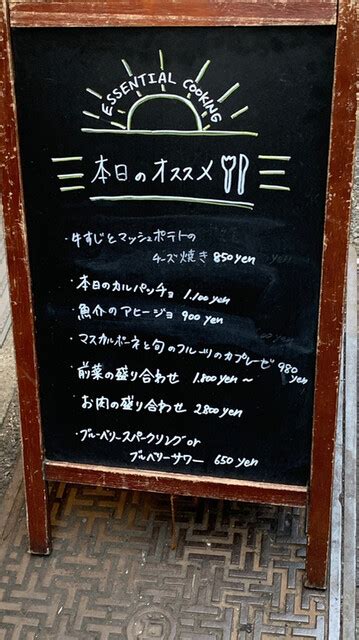 ESSENTIAL COOKING
本日のオススメ
・牛すじとマッシュポテトの
チーズ焼き 850yen
・本日のカルパッチョ 1,100yen
・魚介のアヒージョ 900yen
・マスカルポーネと旬のフルーツのカプレーゼ 980
yen
・前菜の盛り合わせ 1,800yen〜
・お肉の盛り合わせ 2800yen
・ブルーベリースパークリングor
ブルーベリーサワー 650yen